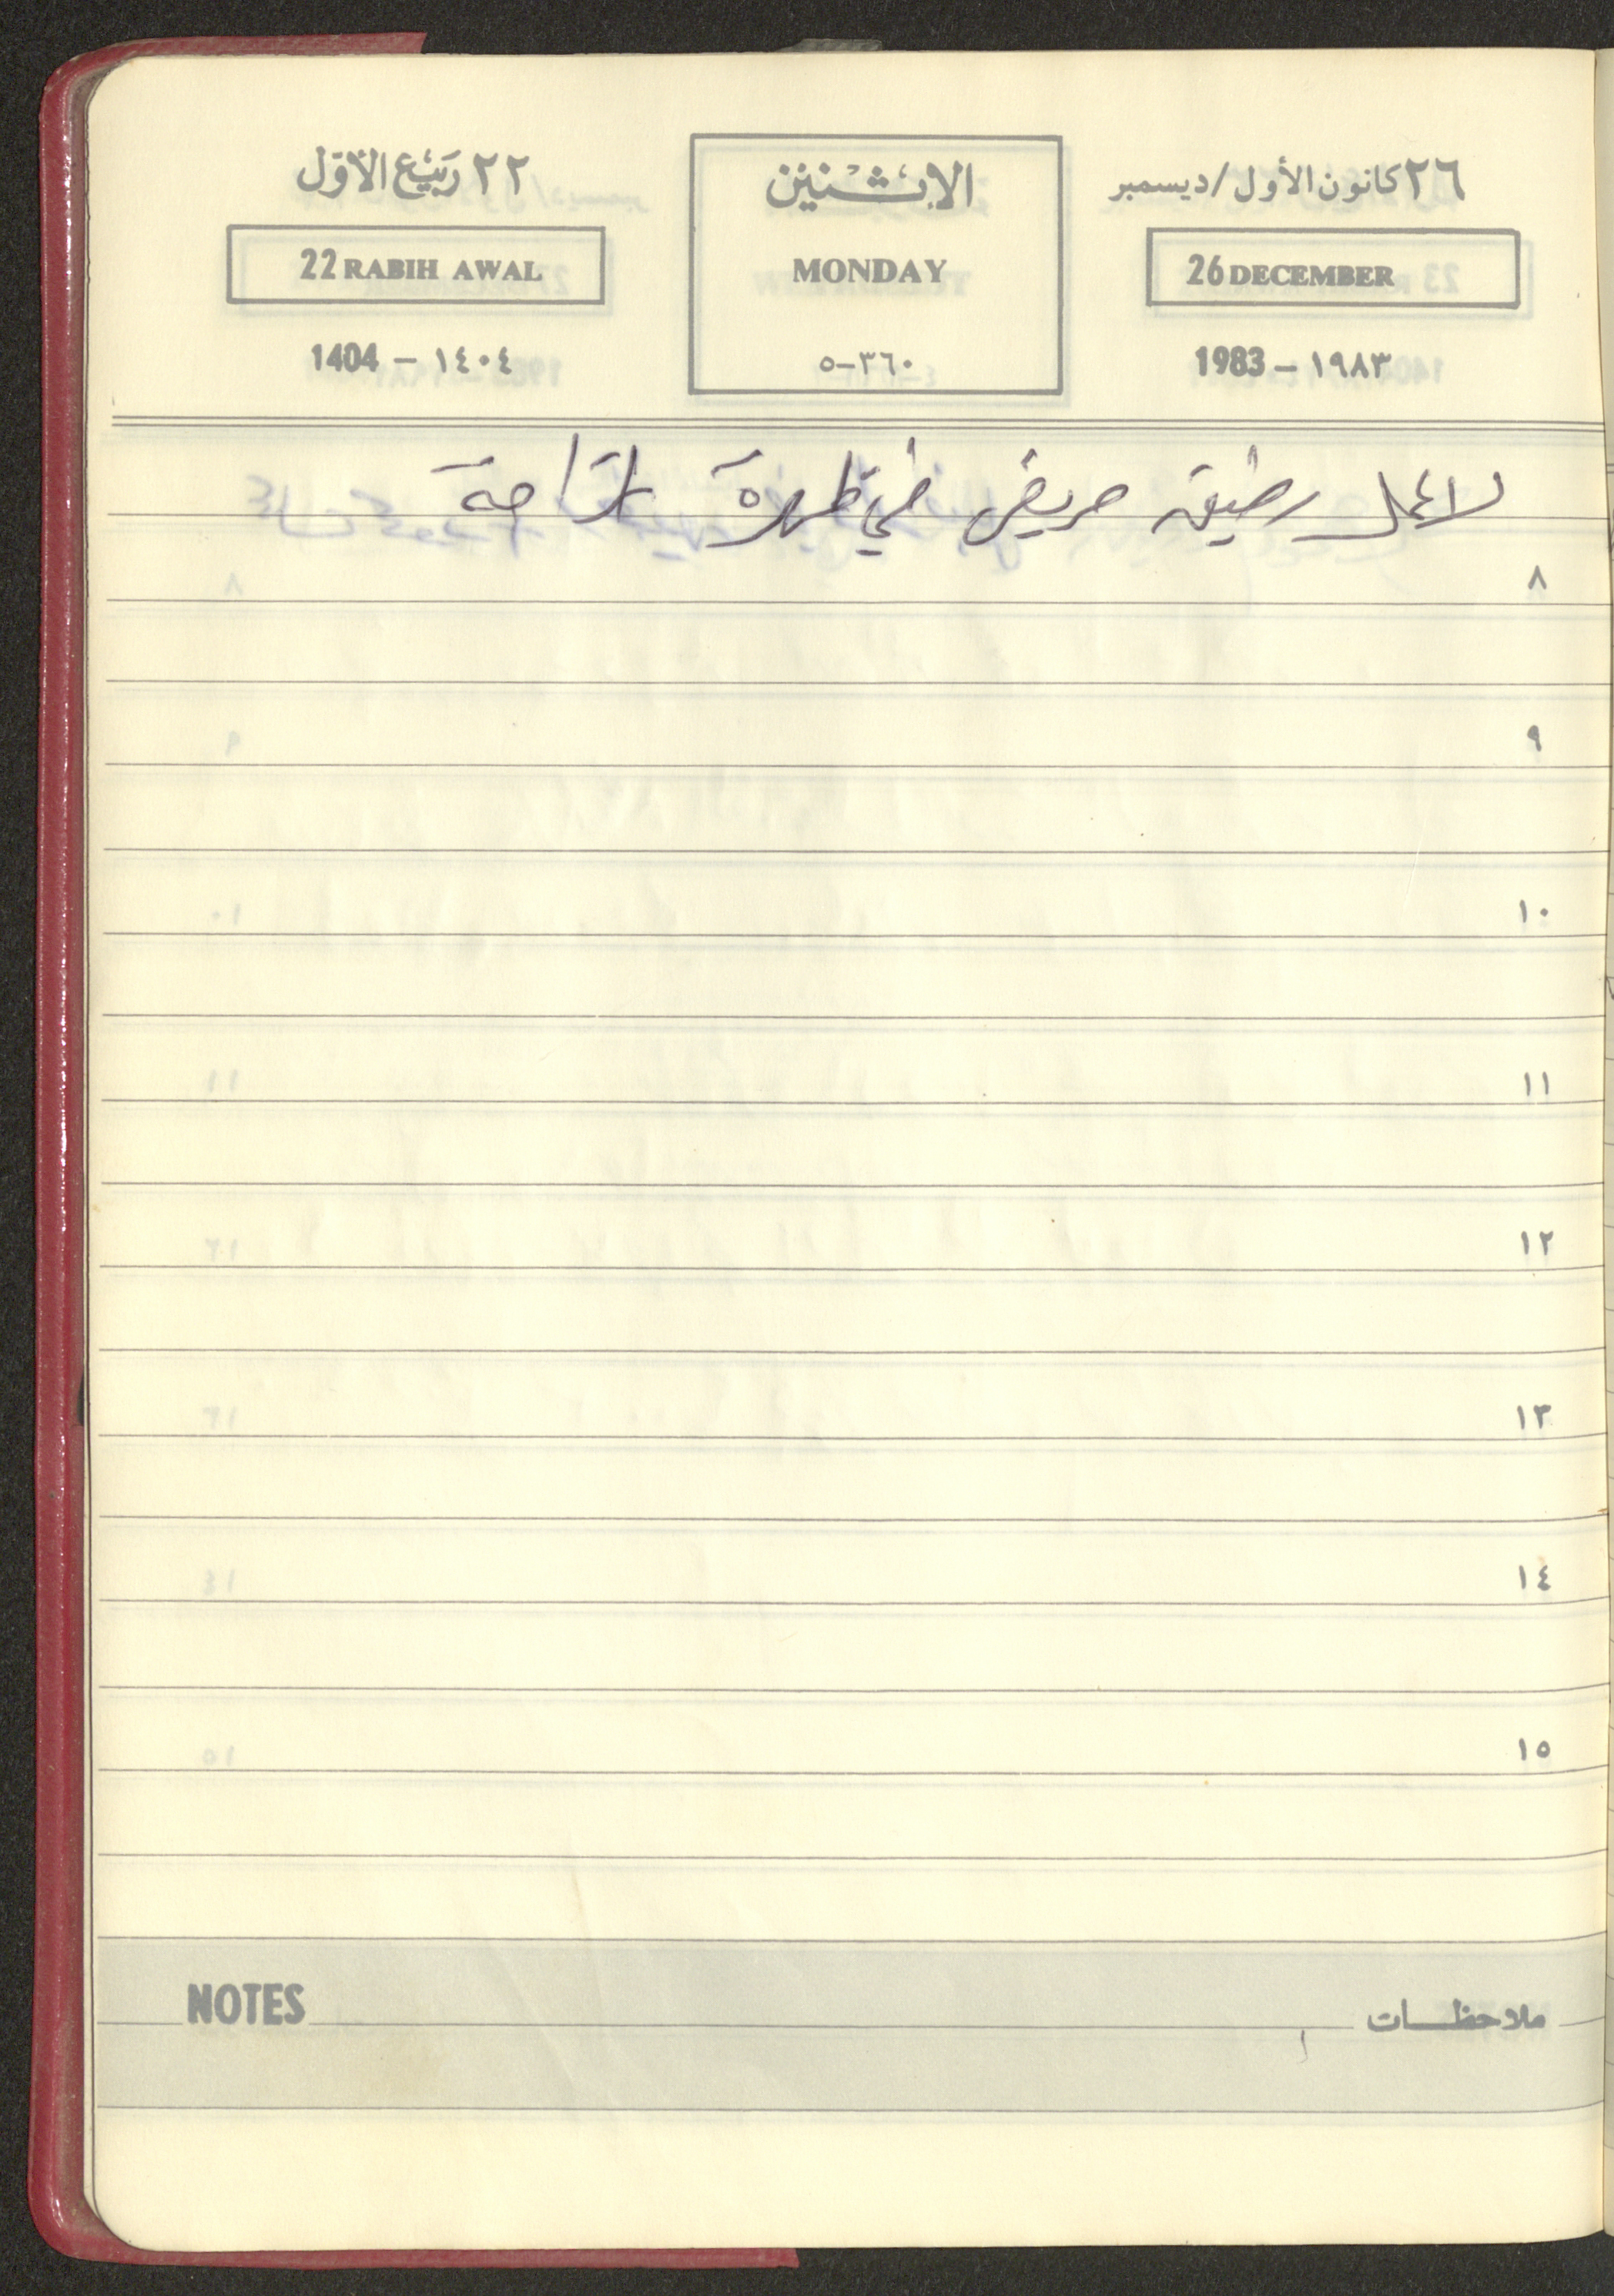 ٢٦ كانون الأول/ديسمبر
الاثنين
٢٢ ربيع الأول
26 DECEMBER
MONDAY
22 RABIH AWAL
1983 – ١٩٨٣
٣٦٠–٥
1404 – ١٤٠٤
لا عمل رفيق مريض في ظهره
٨
٩
١٠
١١
١٢
١٣
١٤
١٥
ملاحظات
NOTES